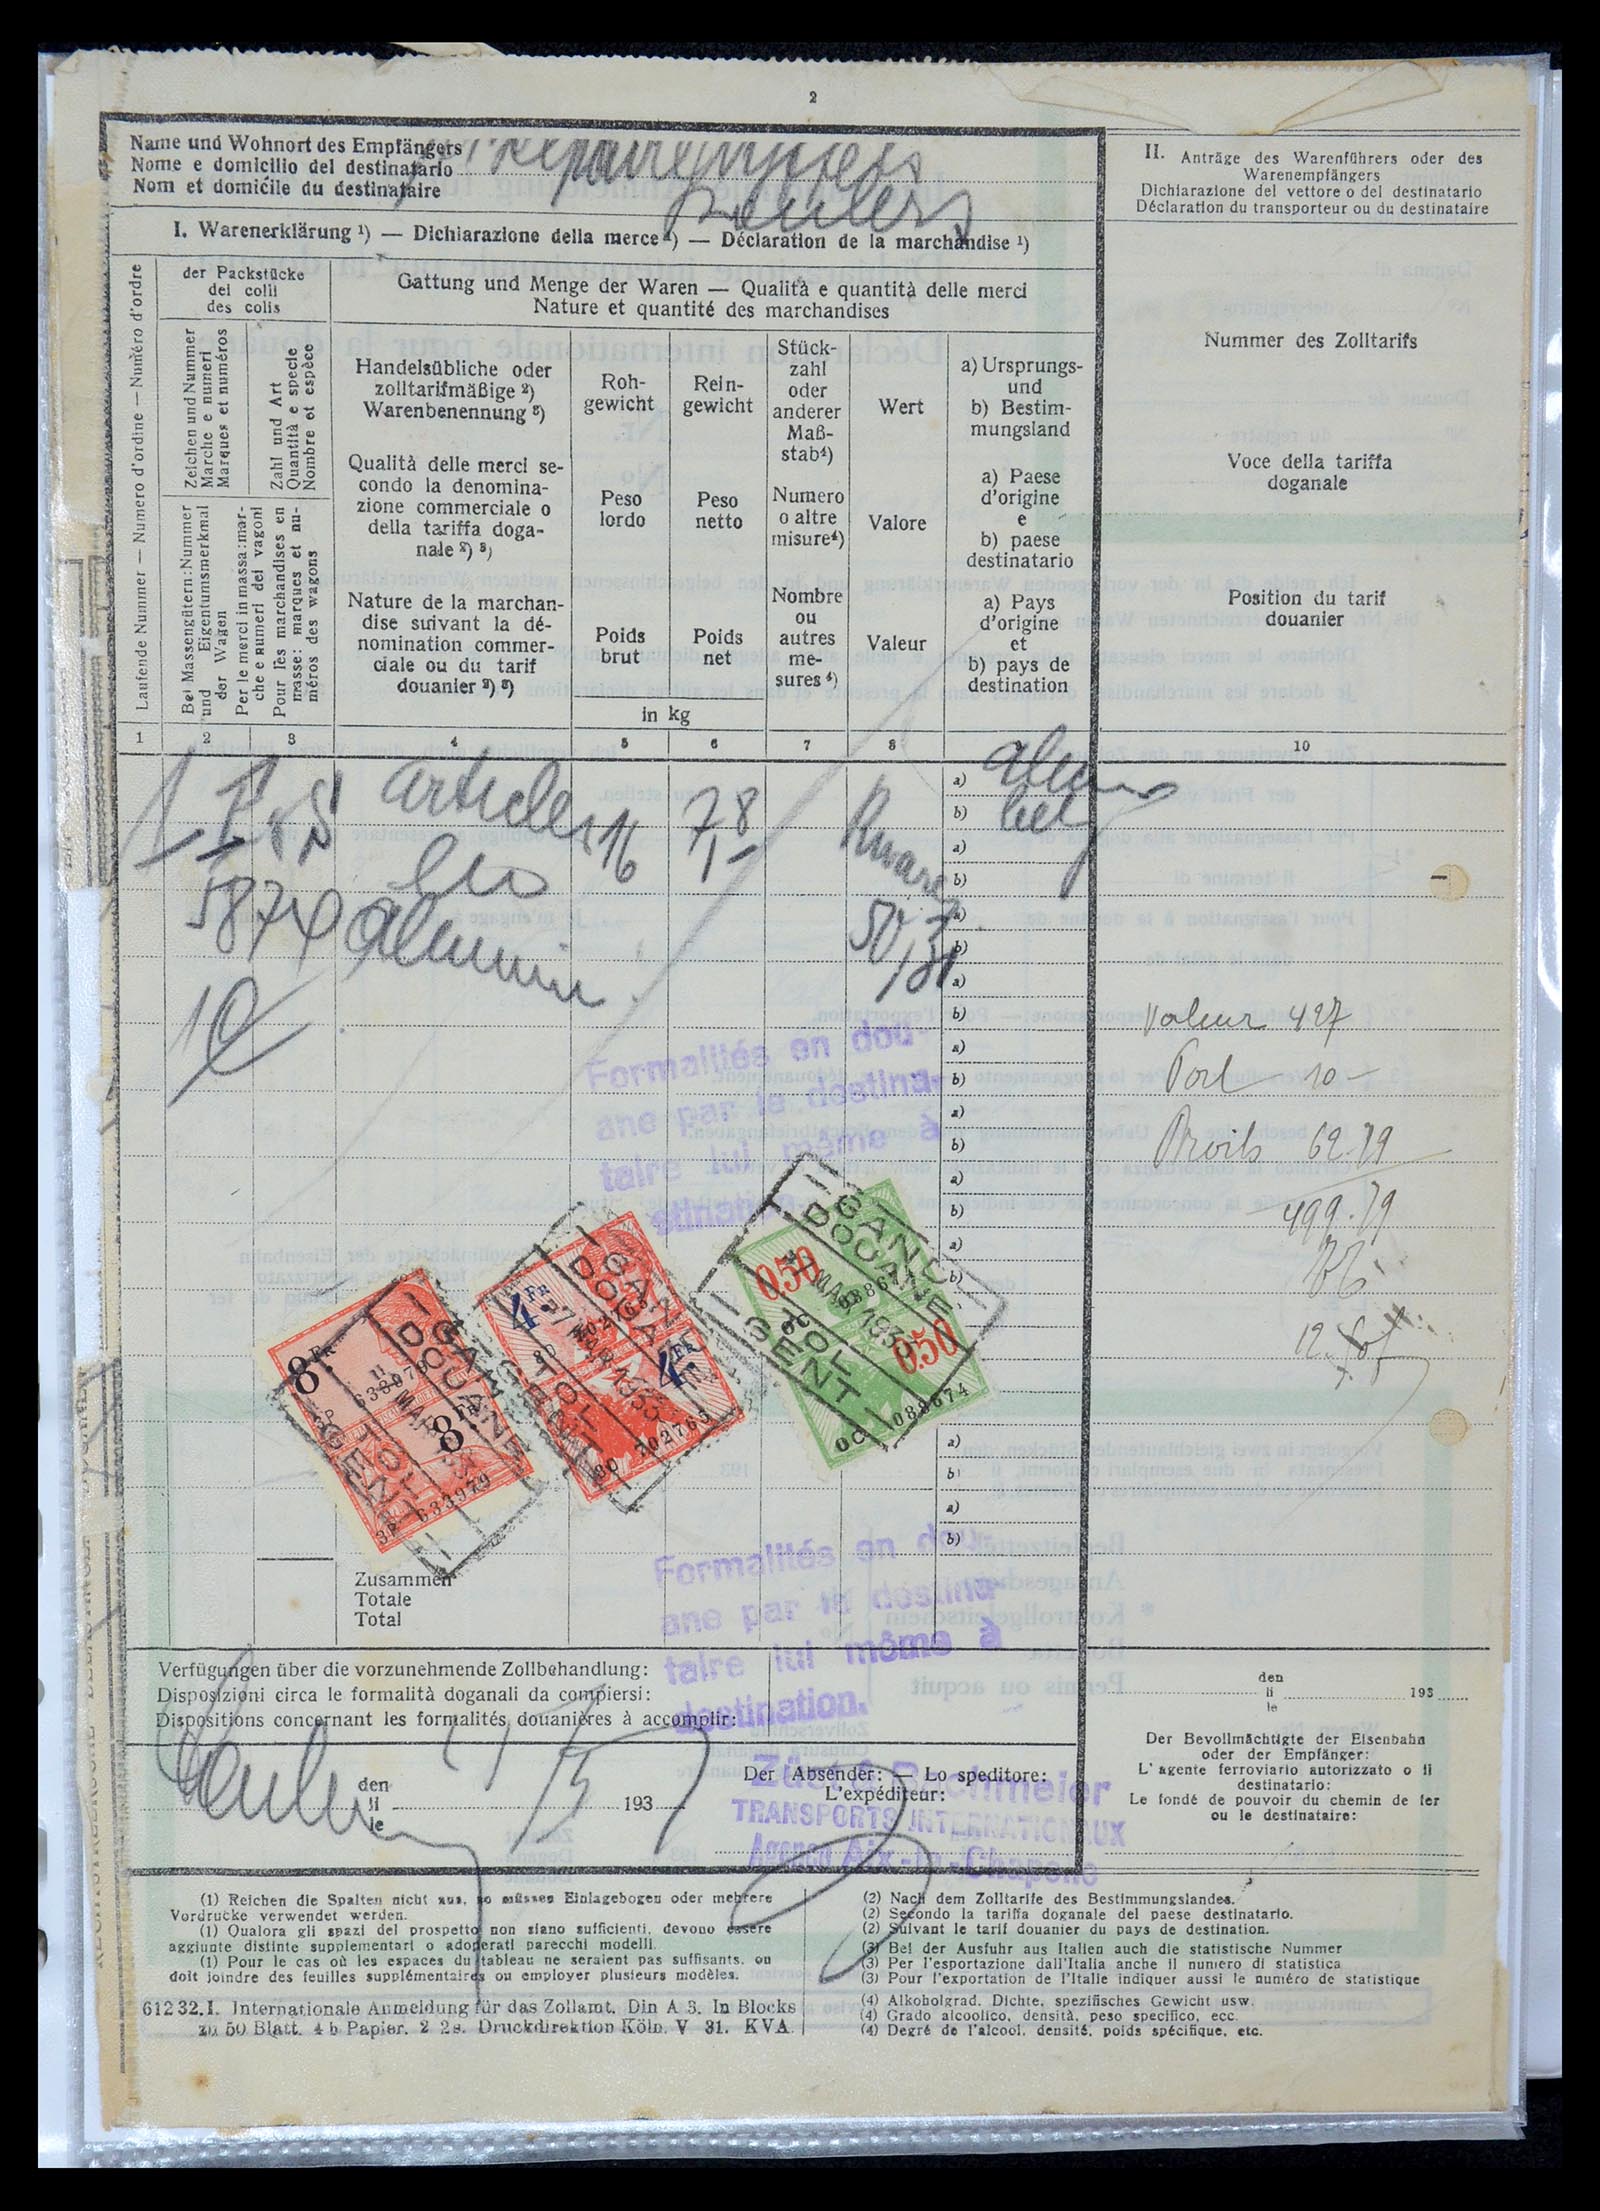 2
Name und Wohnort des Empfängers
Nome e domicilio del destinatario
Nom et domicile du destinataire
I. Warenerklärung ¹) — Dichiarazione della merce ¹) — Déclaration de la marchandise ¹)
II. Anträge des Warenführers oder des
Warenempfängers
Dichiarazione del vettore o del destinatario
Déclaration du transporteur ou du destinataire
Laufende Nummer — Numero d'ordine — Numéro d'ordre
der Packstücke
dei colli
des colis
Zeichen und Nummer
Marche e numeri
Marques et numéros
Zahl und Art
Quantità e specie
Nombre et espèce
Bei Massengütern: Nummer
und Eigentumsmerkmal
der Wagen
Per le merci in massa: mar-
che e numeri dei vagoni
Pour les marchandises en
masse: marques et nu-
méros des wagons
Gattung und Menge der Waren — Qualità e quantità delle merci
Nature et quantité des marchandises
Handelsübliche oder
zolltarifmäßige ²)
Warenbenennung ³)
Qualità delle merci se-
condo la denomina-
zione commerciale o
della tariffa doga-
nale ²) ³)
Nature de la marchan-
dise suivant la dé-
nomination commer-
ciale ou du tarif
douanier ²) ³)
Roh-
gewicht
Peso
lordo
Poids
brut
Rein-
gewicht
Peso
netto
Poids
net
in kg
Stück-
zahl
oder
anderer
Maß-
stab⁴)
Numero
o altre
misure⁴)
Nombre
ou
autres
me-
sures ⁴)
Wert
Valore
Valeur
a) Ursprungs-
und
b) Bestim-
mungsland
a) Paese
d'origine
e
b) paese
destinatario
a) Pays
d'origine
et
b) pays de
destination
Nummer des Zolltarifs
Voce della tariffa
doganale
Position du tarif
douanier
1 2 3 4 5 6 7 8 10
articles 16 7,8
5874 alumin
10
a)
b)
a)
b)
a)
b)
a)
b)
a)
b)
a)
b)
a)
b)
a)
b)
a)
b)
a)
b)
Valeur 427
Port 10 -
Droits 62.79
499.79
Formalités en dou-
ane par le destina-
taire lui même à
destination
GAND
DOUANE
TOL
GENT
8 FR
8 FR
3P 633979
4 FR
4 FR
8D 202765
0.50
0.50
0C 038674
Zusammen
Totale
Total
Formalités en dou-
ane par le destina-
taire lui même à
destination.
Verfügungen über die vorzunehmende Zollbehandlung:
Disposizioni circa le formalità doganali da compiersi:
Dispositions concernant les formalités douanières à accomplir:
den
li
le
193
Der Absender: — Lo speditore:
L'expéditeur:
Züst & Bachmeier
TRANSPORTS INTERNATIONAUX
Agence Aix-la-Chapelle
den
li
le
193
Der Bevollmächtigte der Eisenbahn
oder der Empfänger:
L'agente ferroviario autorizzato o il
destinatario:
Le fondé de pouvoir du chemin de fer
ou le destinataire:
(1) Reichen die Spalten nicht aus, so müssen Einlagebogen oder mehrere
Vordrucke verwendet werden.
(1) Qualora gli spazi del prospetto non siano sufficienti, devono essere
aggiunte distinte supplementari o adoperati parecchi modelli.
(1) Pour le cas où les espaces du tableau ne seraient pas suffisants, on
doit joindre des feuilles supplémentaires ou employer plusieurs modèles.
(2) Nach dem Zolltarife des Bestimmungslandes.
(2) Secondo la tariffa doganale del paese destinatario.
(2) Suivant le tarif douanier du pays de destination.
(3) Bei der Ausfuhr aus Italien auch die statistische Nummer
(3) Per l'esportazione dall'Italia anche il numero di statistica
(3) Pour l'exportation de l'Italie indiquer aussi le numéro de statistique
(4) Alkoholgrad, Dichte, spezifisches Gewicht usw.
(4) Grado alcoolico, densità, peso specifico, ecc.
(4) Degré de l'alcool, densité, poids spécifique, etc.
612 32.I. Internationale Anmeldung für das Zollamt. Din A 3. In Blocks
zu 50 Blatt. 4 b Papier. 2 2s. Druckdirektion Köln. V 31. KVA.